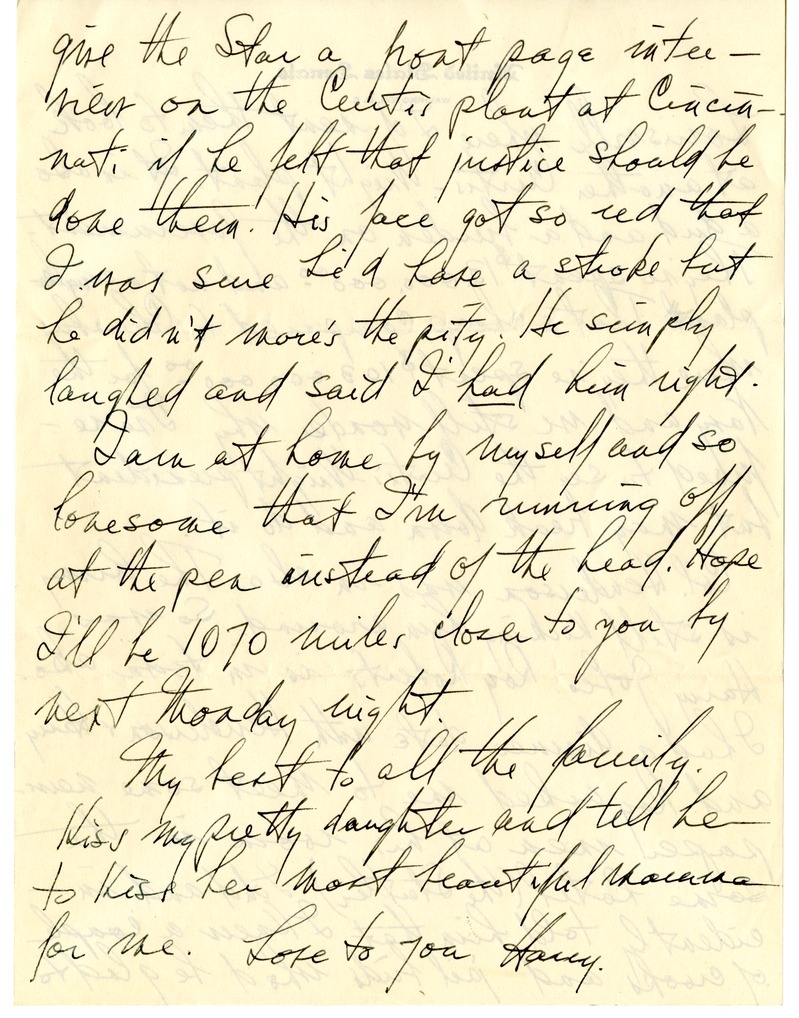 give the Star a front page inter-
view on the Curtis plant at Cincin-
nati if he felt that justice should be
done them. His face got so red that
I was sure he'd have a stroke but
he didn't more's the pity. He simply
laughed and said I had him right.
I am at home by myself and so
lonesome that I'm running off
at the pen instead of the head. Hope
I'll be 1070 miles closer to you by
next Monday night.
My best to all the family.
Kiss my pretty daughter and tell her
to kiss her most beautiful mamma
for me. Love to you Harry.